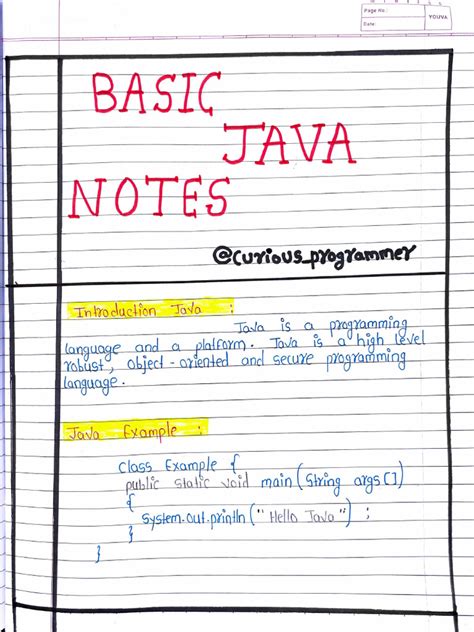 Page No.:
Date:
YOUVA
BASIC
JAVA
NOTES
@curious_programmer
Introduction Java :
Java is a programming
language and a platform. Java is a high level
robust, object-oriented and secure programming
language.
Java Example :
Class Example {
public static void main (String args [])
{
System.out.println (" Hello Java ") ;
}
}